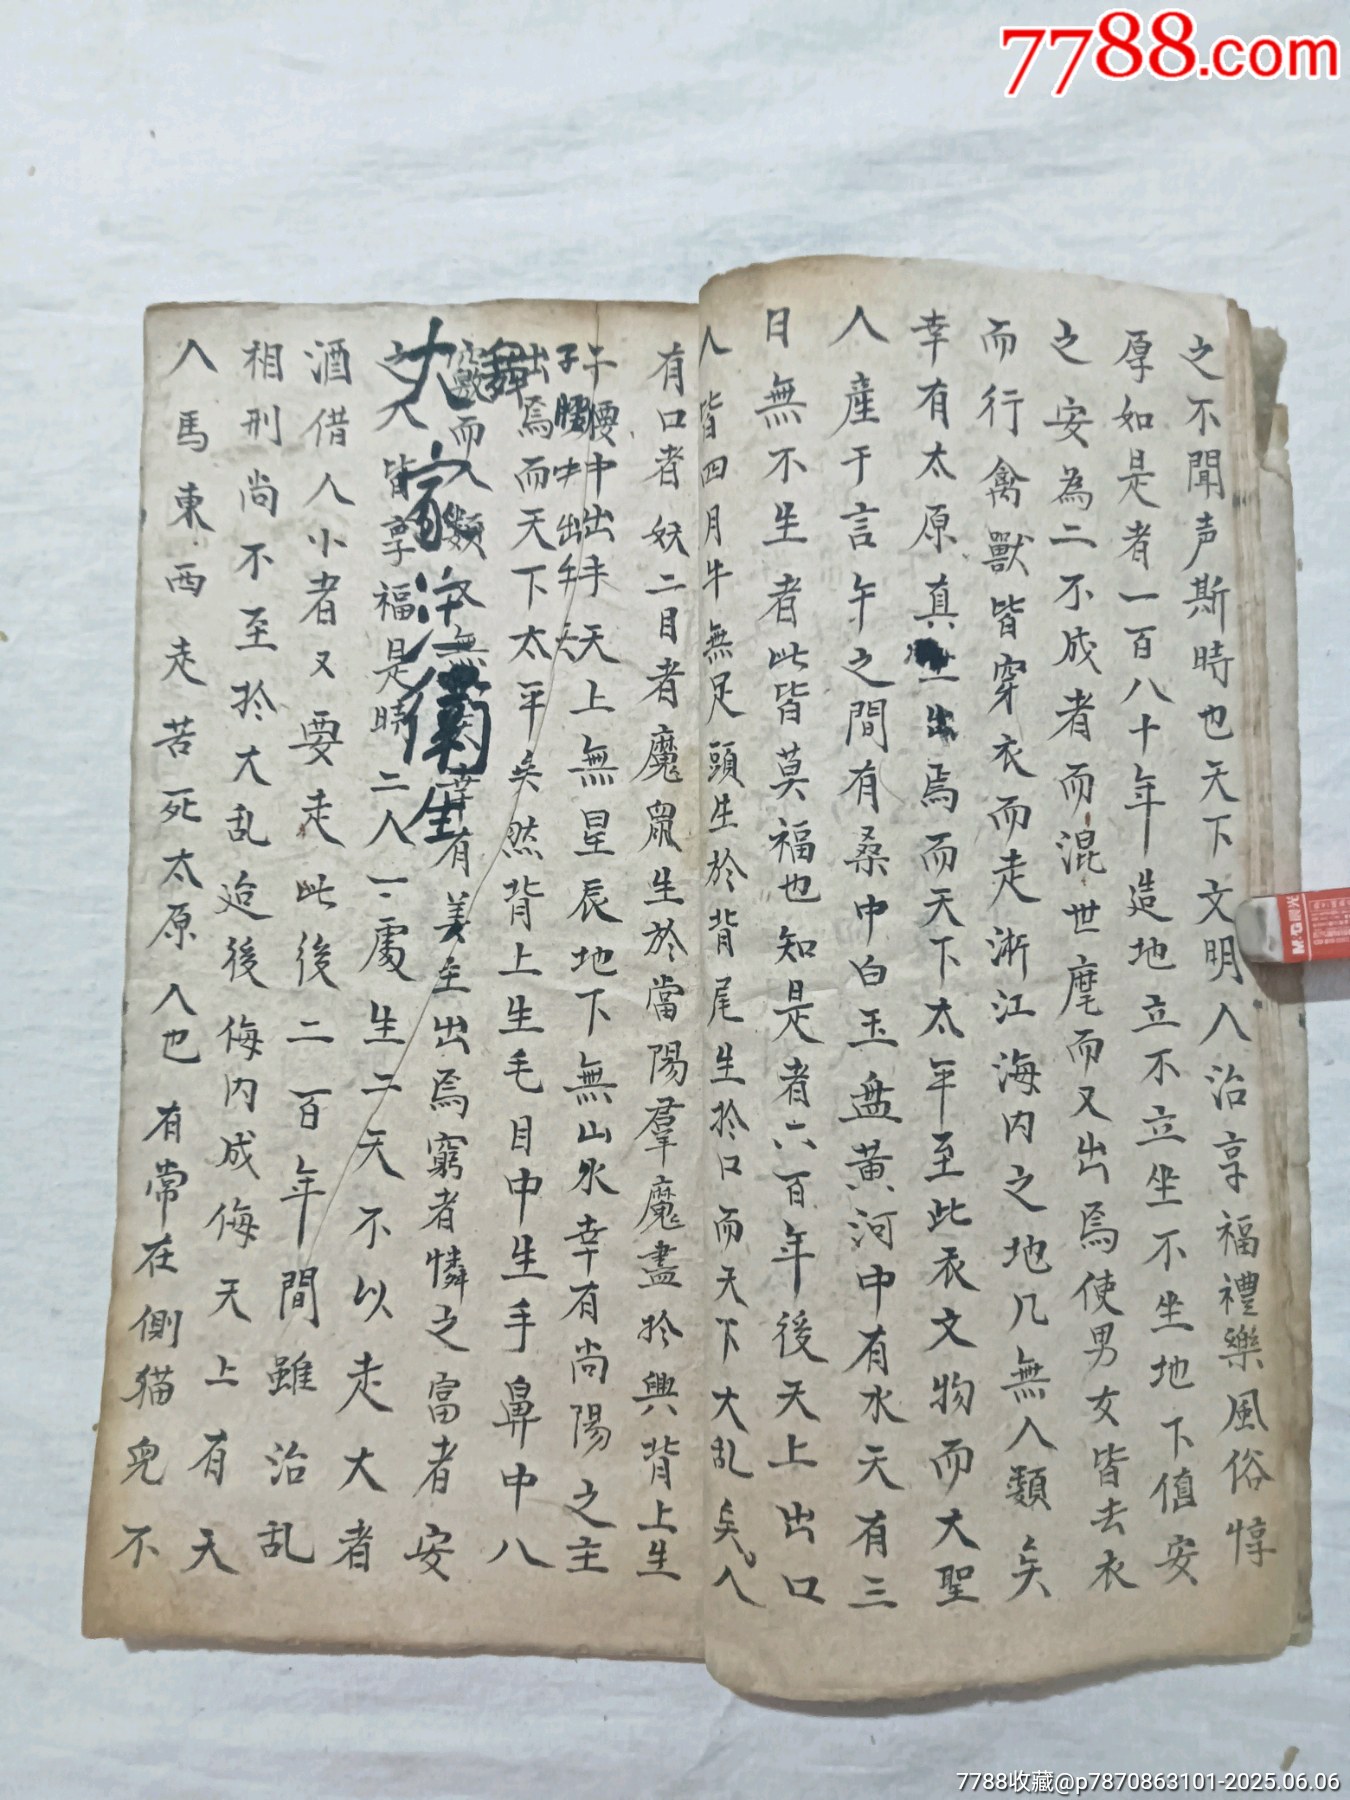 7788.com
之不聞声斯時也天下文明人治享福禮樂風俗惇
厚如是者一百八十年造地立不立坐不坐地下值安
之安為二不成者而混世麾而又出焉使男女皆去衣
而行禽獸皆穿衣而走淅江海内之地几無人類矣
幸有太原真出焉而天下太平至此衣文物而大聖
人產于言午之間有桑中白玉盘黄河中有水天有三
日無不生者此皆莫福也知是者六百年後天上出口
人皆四月牛無足頭生於背尾生於口而天下大乱矣人
有口者妖二目者魔眾生於當陽羣魔盡於興背上生
子腰中出手天上無星辰地下無山水幸有尚陽之主
出焉而天下太平矣然背上生毛目中生手鼻中八
而人類無幸有美主出焉窮者憐之富者安
之人皆享福是時二人一處生二天不以走大者
酒借人小者又要走此後二百年間雖治乱
相刑尚不至於大乱迨後侮内成侮天上有天
人馬東西走苦死太原人也有常在側猫兒不
M&G晨光
7788收藏@p7870863101-2025.06.06